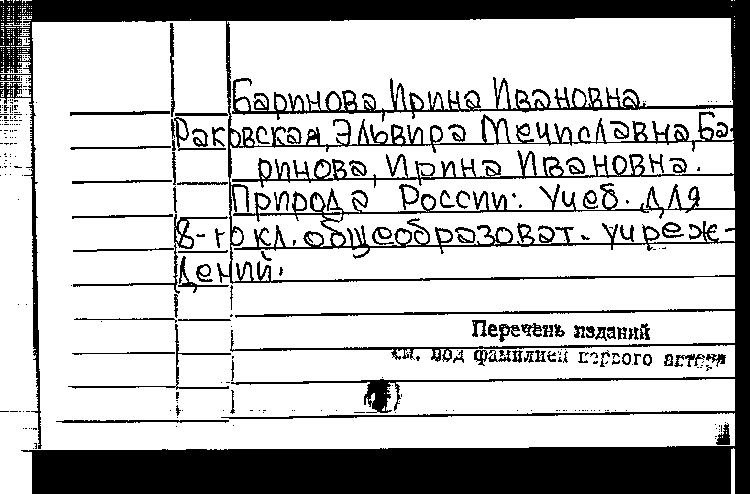 Баринова, Ирина Ивановна.
Раковская, Эльвира Мечиславна, Ба-
ринова, Ирина Ивановна.
Природа России: Учеб. для
8-го кл. общеобразоват. учреж-
дений.
Перечень изданий
см. под фамилией первого автора